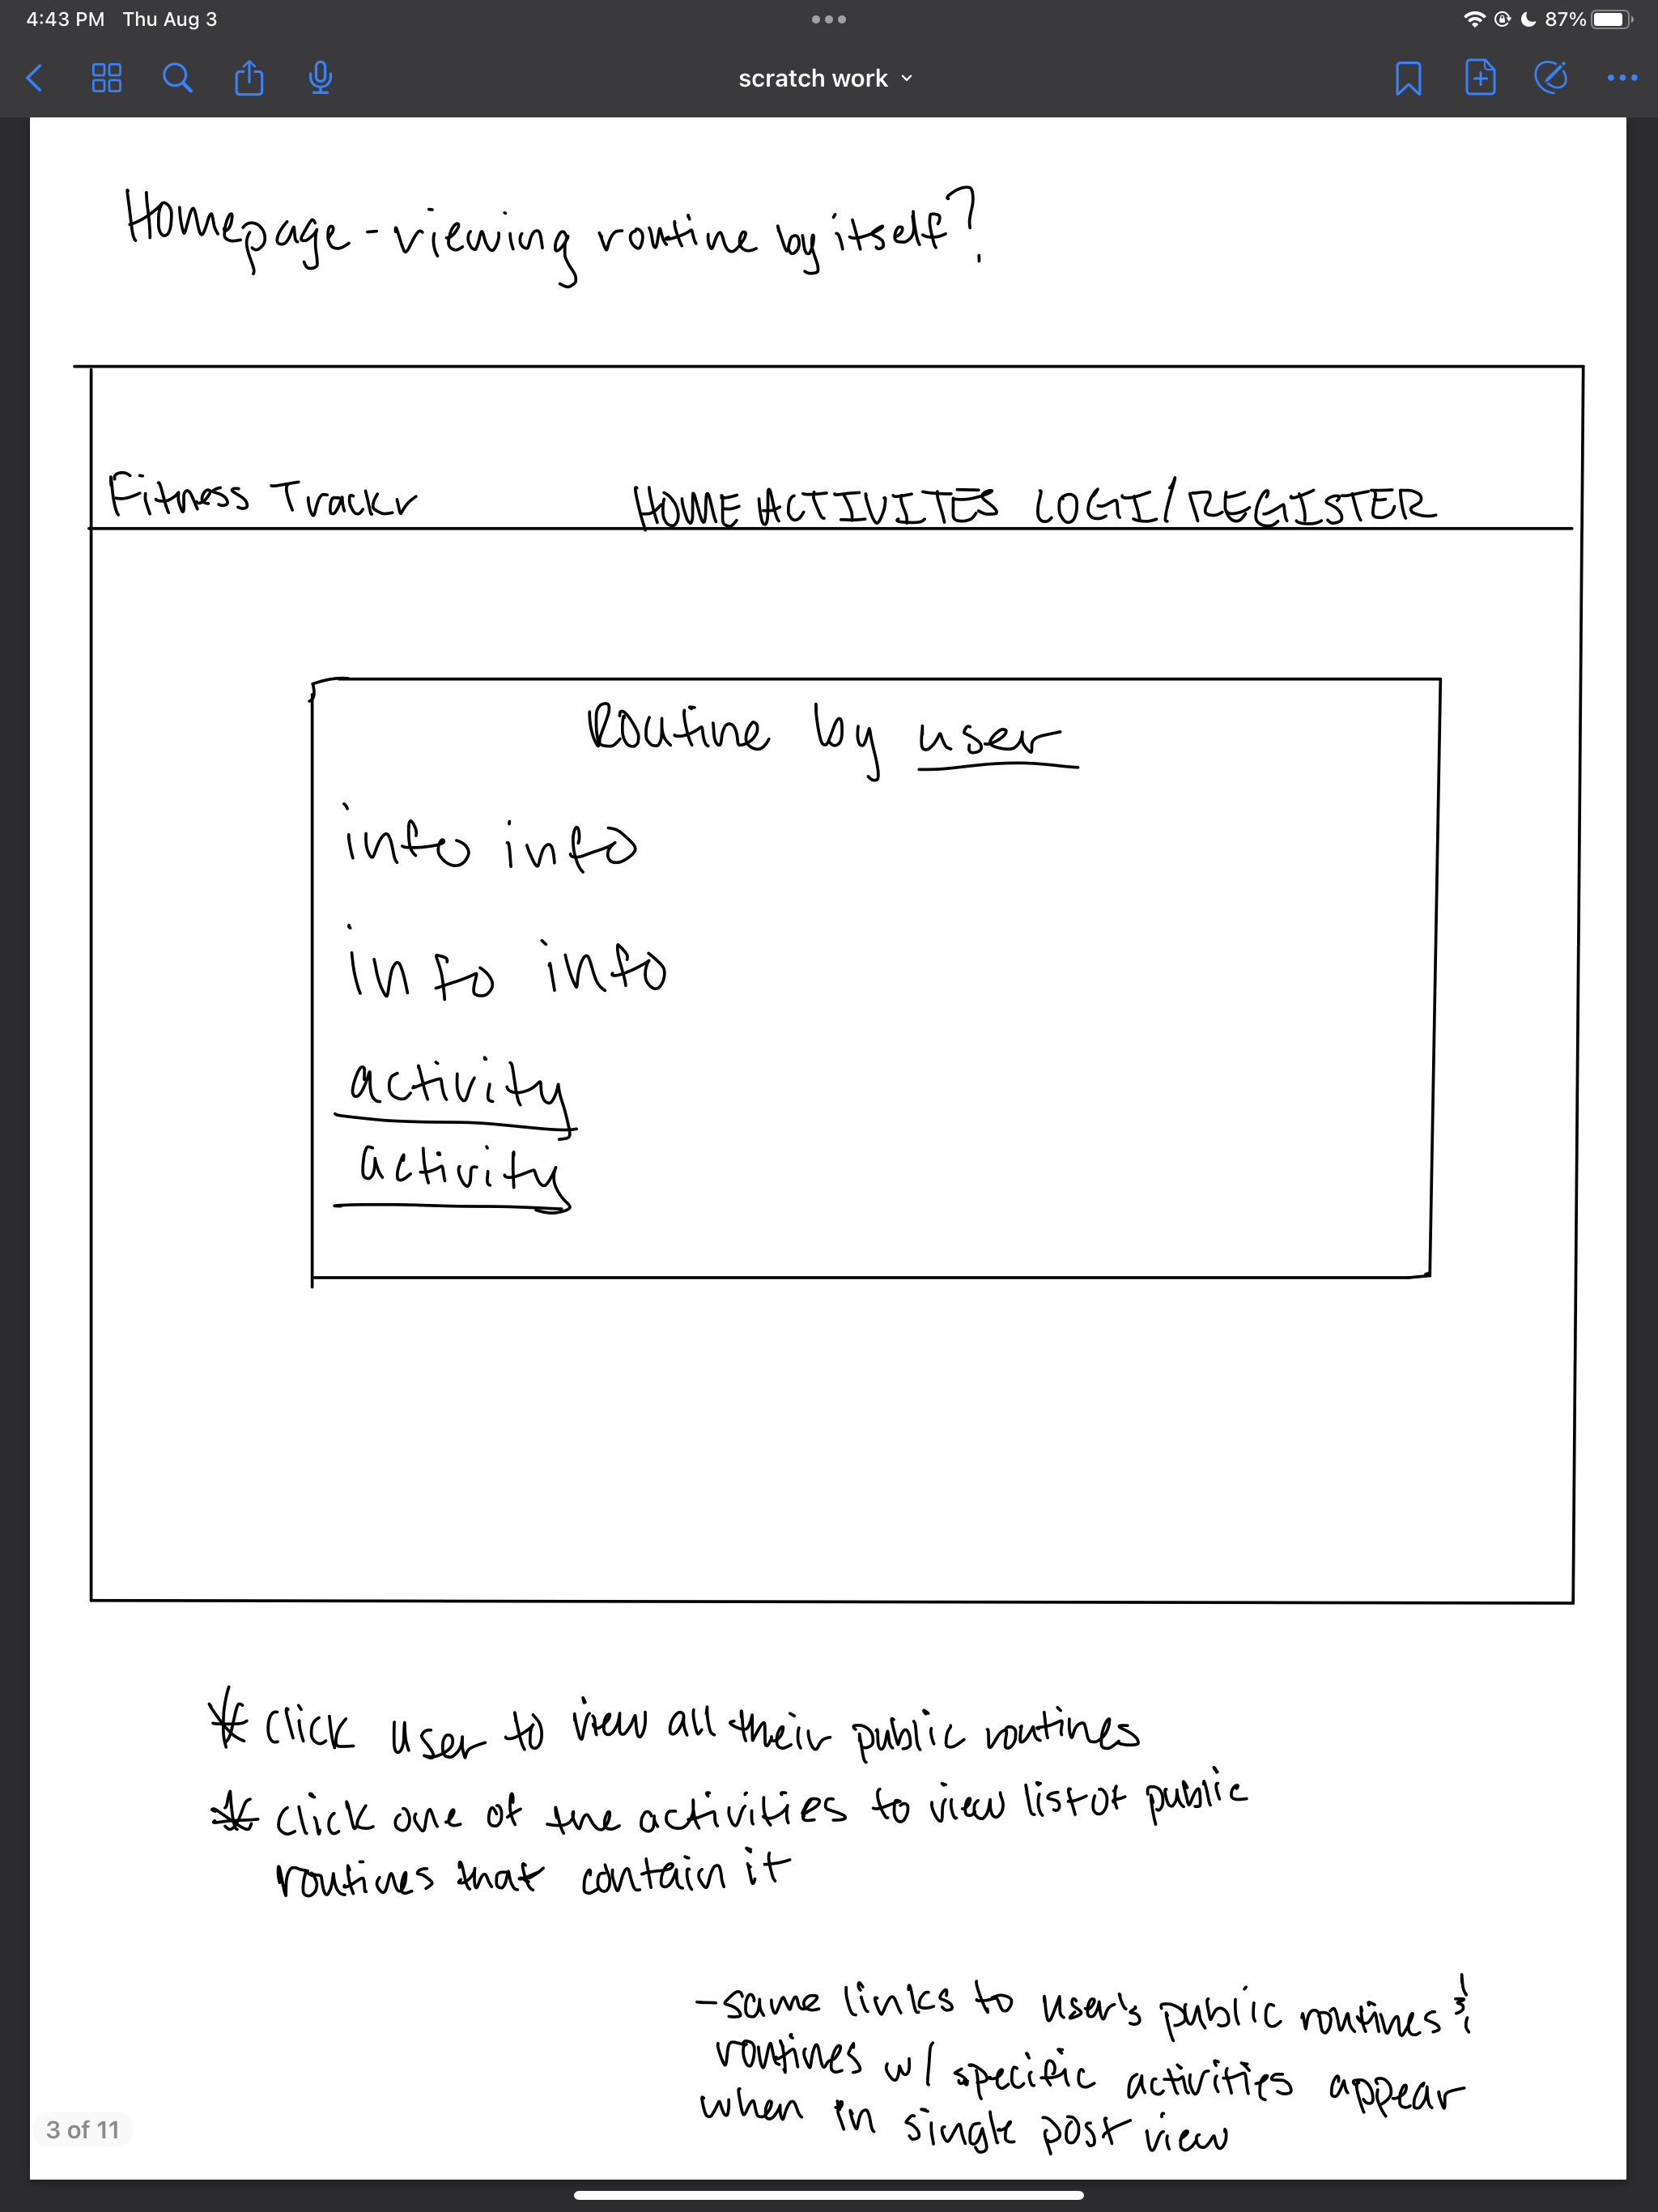 4:43 PM Thu Aug 3
87%
scratch work
Homepage - viewing routine by itself?
Fitness Trackr HOME ACTIVITES LOGI/REGISTER
Routine by user
info info
info info
activity
activity
* click user to view all their public routines
* click one of the activities to view list of public
routines that contain it
- same links to user's public routines &
routines w/ specific activities appear
when in single post view
3 of 11